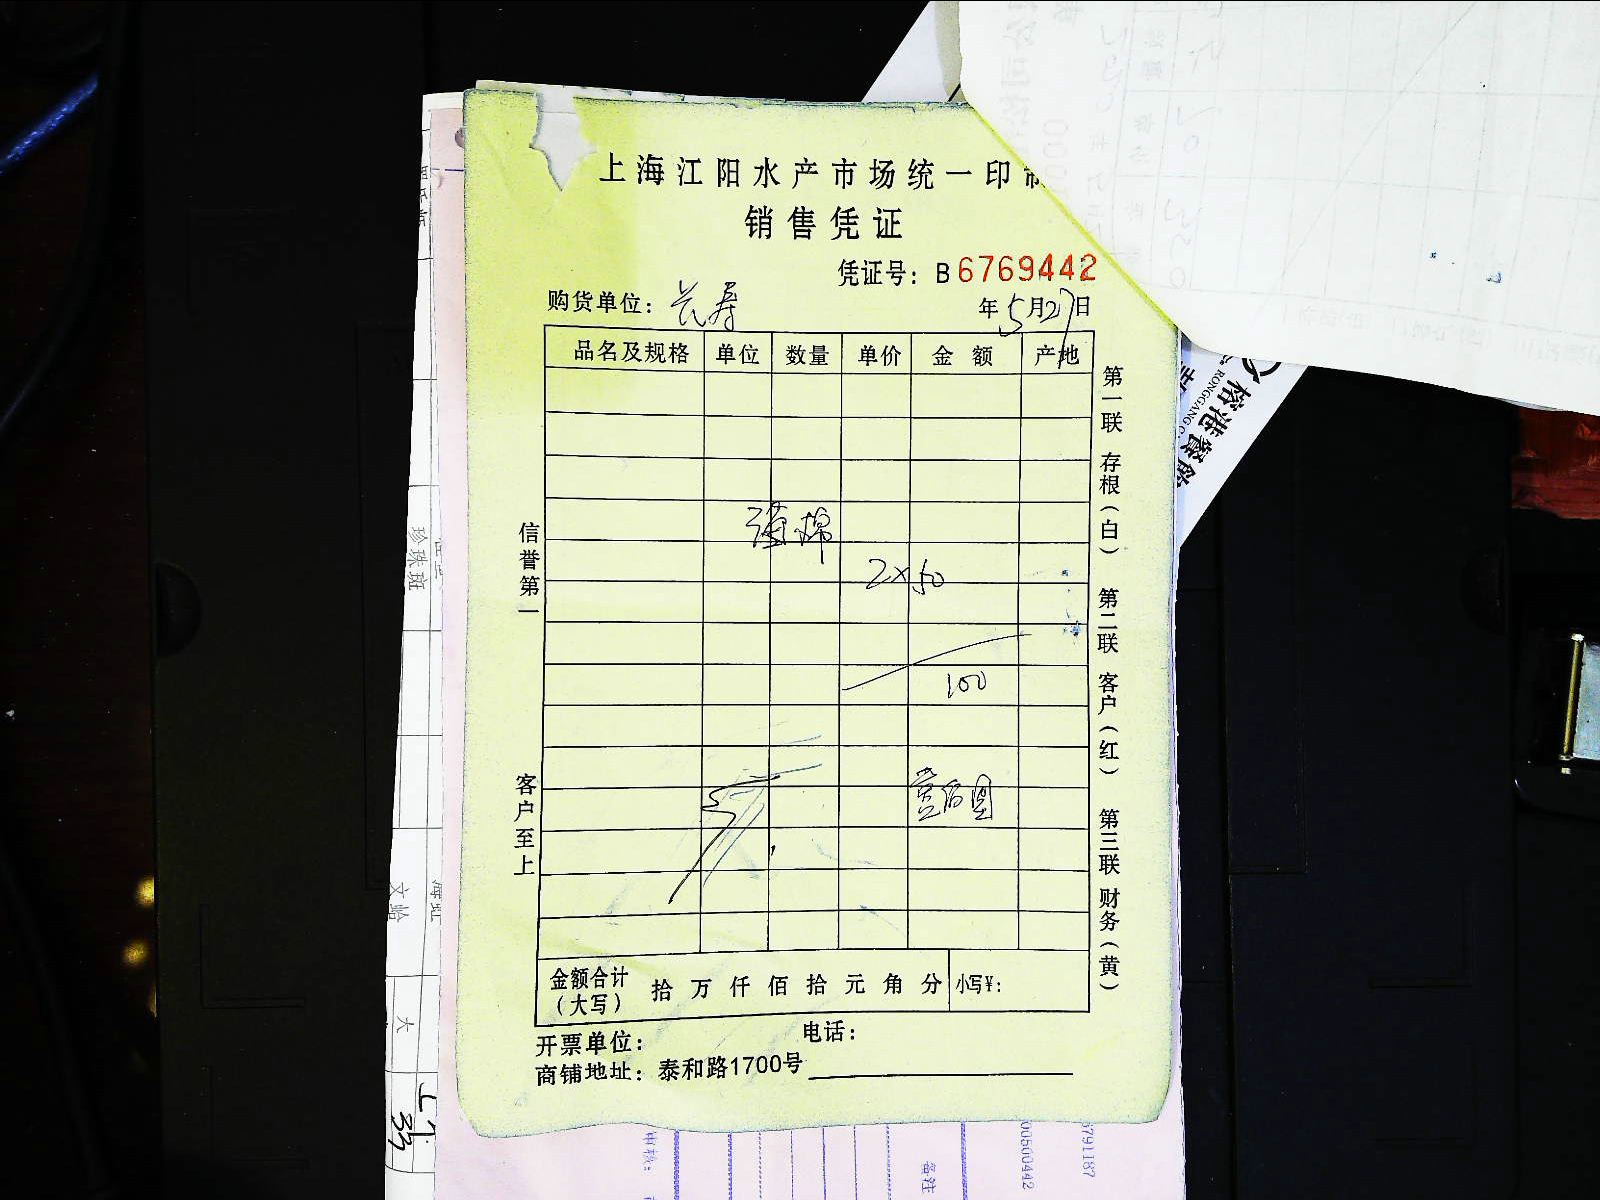 上海江阳水产市场统一印制
销售凭证
凭证号：B 6769442
购货单位：长寿 年5月27日
品名及规格 单位 数量 单价 金额 产地
2×50
100
壹佰圆
金额合计（大写） 拾 万 仟 佰 拾 元 角 分 小写¥：
开票单位： 电话：
商铺地址：泰和路1700号
信誉第一
客户至上
第一联 存根（白） 第二联 客户（红） 第三联 财务（黄）
珍珠斑
裕港餐饮
RONGGANG
备注
00500442
6791187